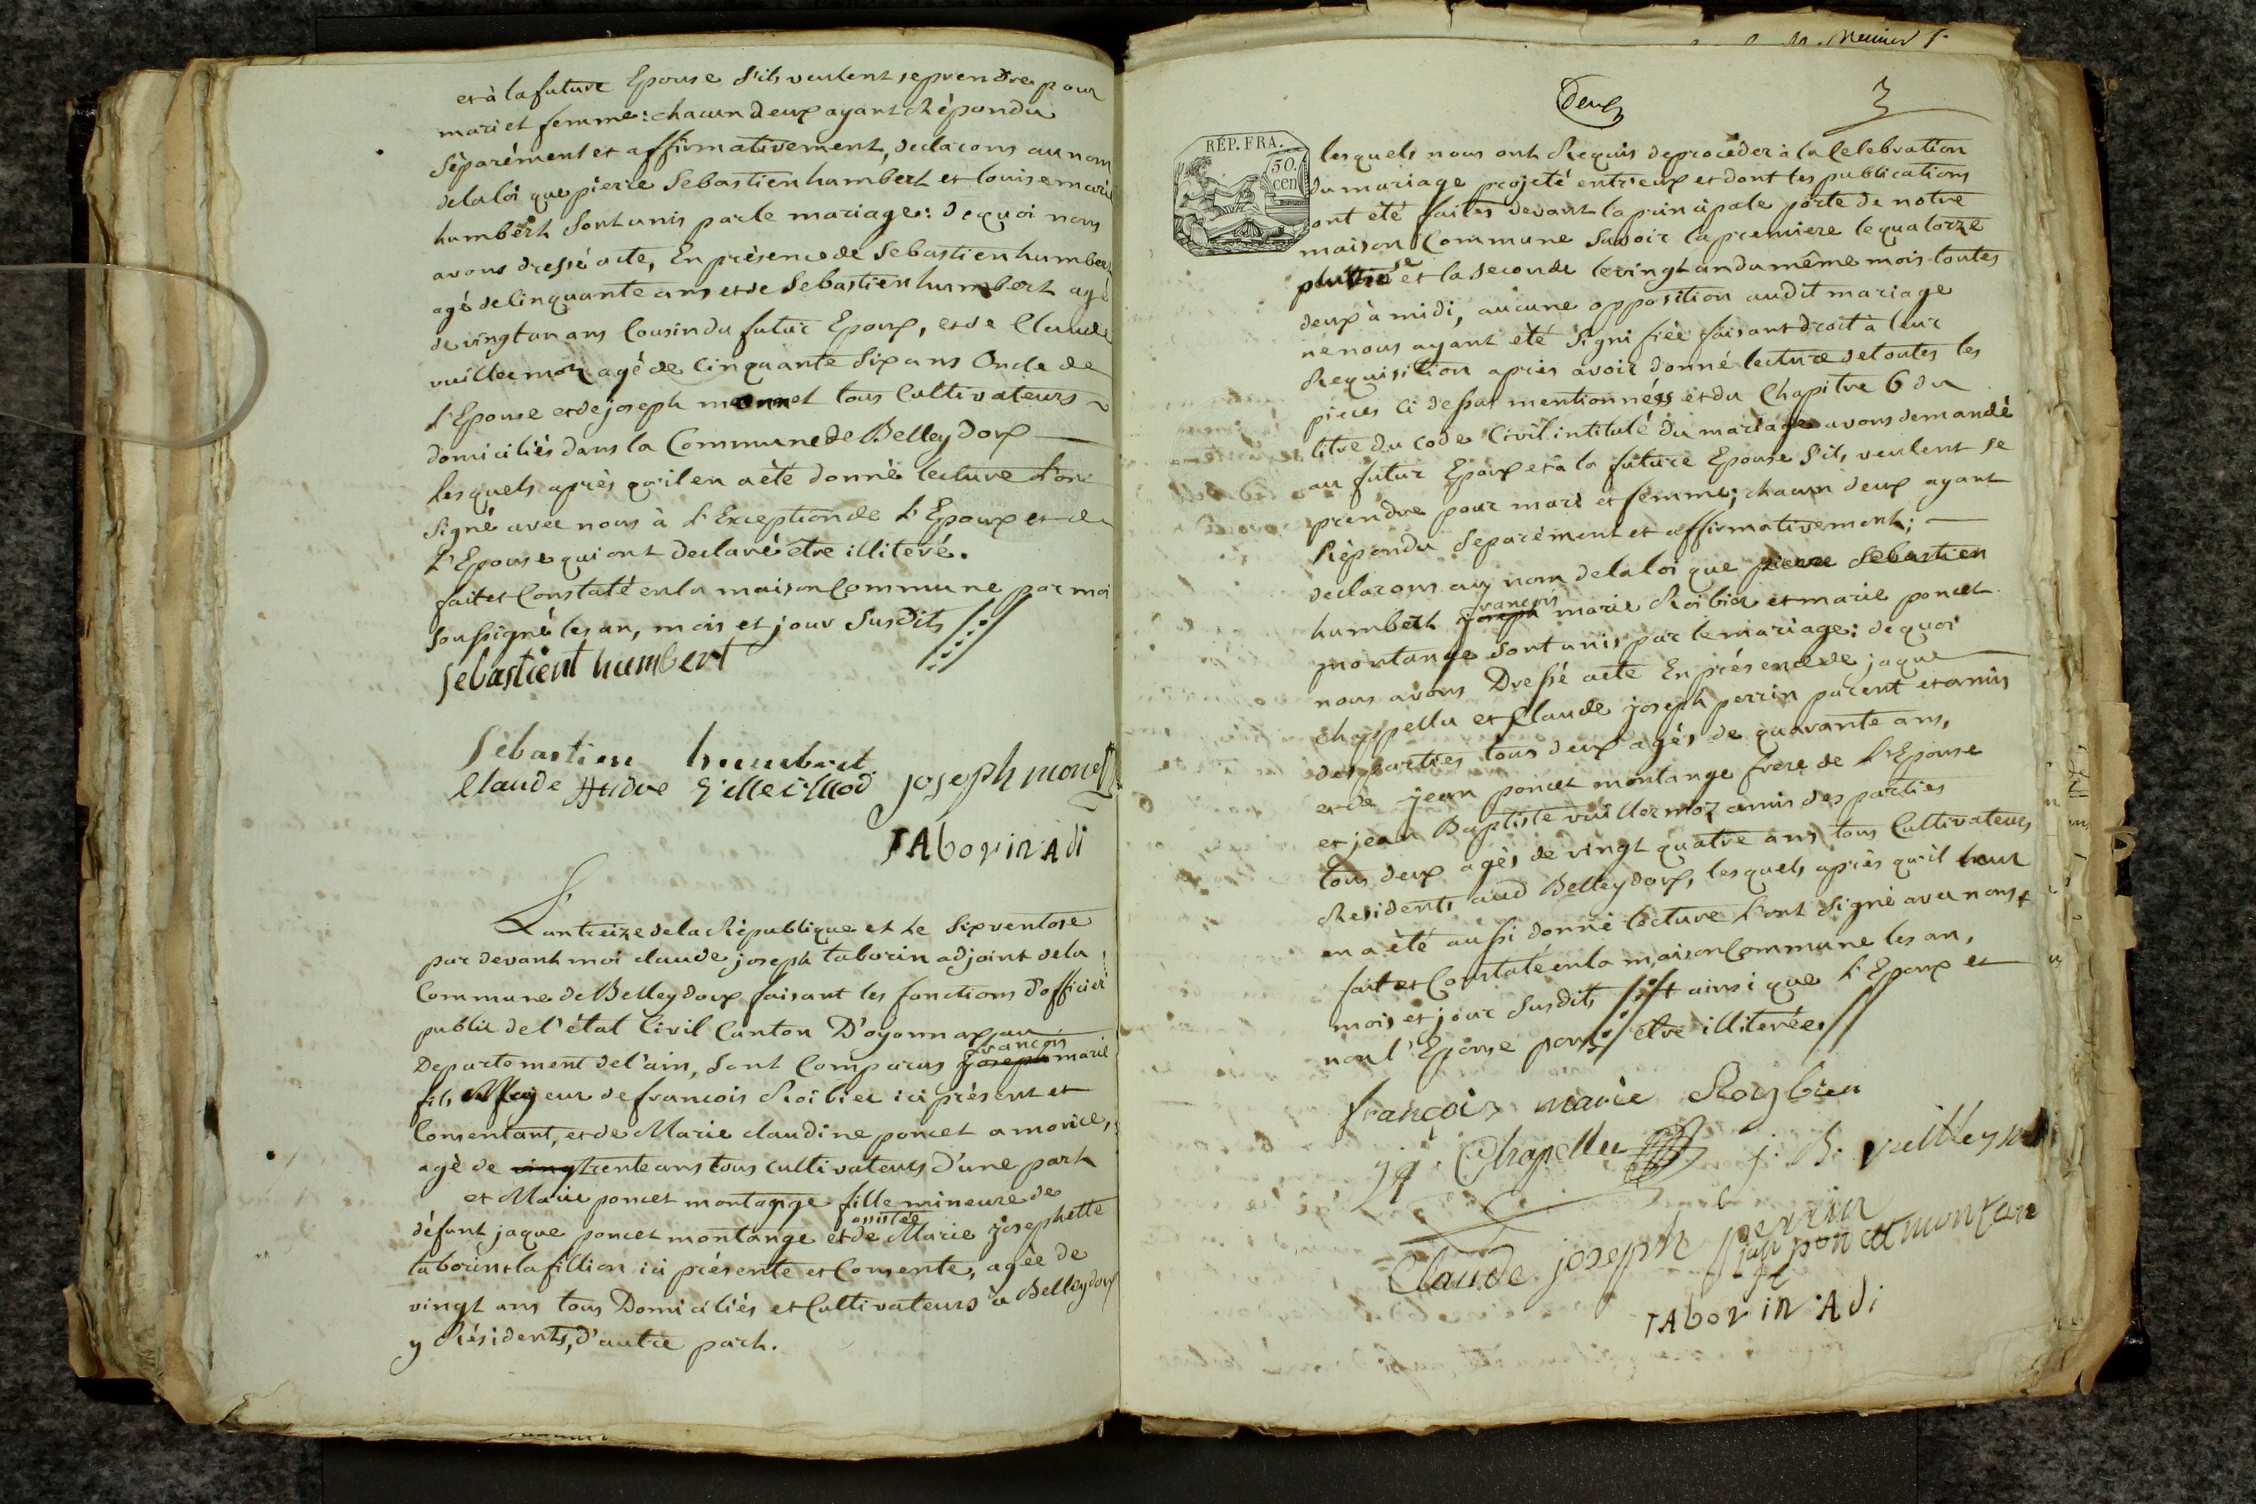 et à la future Epouse s'ils veulent se prendre pour
mari et femme: chacun deux ayant Répondu
Séparément et affirmativement, declarons au nom
de la loi que pierre Sebastien humbert et louise marie
humbert Sont unis par le mariage: de quoi nous
avons dressé acte, En présence de Sebastien humbert
agé de Cinquante ans et de Sebastien humbert agé
de vingt un ans Cousin du futur Epoux, et de Claude
vuillermoz agé de Cinquante Six ans Oncle de
L'Epouse et de joseph monnet tous Cultivateurs
domiciliés dans la Commune de Belleydoux
lesquels après qu'il en a été donné lecture L'ont
Signé avec nous à L'Exception de L'Epoux et de
L'Epouse qui ont declaré etre illiteré.
fait et Constaté en la maison Commune par moi
Soussigné les an, mois et jour Susdits
sebastient humbert
Sebastien humbert
Claude joseph monet
TAborin Adi
L'an treize de la République et le Six ventose
par devant moi claude joseph taborin adjoint de la
Commune de Belleydoux faisant les fonctions d'officier
public de l'état Civil Canton D'oyonnax au
françois
Departement de l'ain, Sont Comparus joseph marie
fils Majeur de francois Roibier ici présent et
Consentant, et de Marie claudine poncet a morice,
agé de vingt trente ans tous cultivateurs D'une part
et Marie poncet montange fille mineure de
assistée
défunt jaque poncet montange et de Marie josephette
taborin lafillion ici présente et Consente, agée de
vingt ans tous Domiciliés et Cultivateurs à Belleydoux
y Résidents, d'autre part.
Deux 3
RÉP. FRA.
50.
cen
lesquels nous ont Requis de procéder à la Celebration
du mariage projeté entr'eux et dont les publications
ont été faites devant la principale porte de notre
maison Commune Savoir la premiere le quatorze
et la seconde le vingt un du même mois toutes
deux à midi, aucune opposition audit mariage
ne nous ayant été Signifiée faisant droit à leur
Requisition après avoir donné lecture de toutes les
pieces ci dessus mentionnées et du Chapitre 6 du
titre du code Civil intitulé du mariage avons demandé
au futur Epoux et à la future Epouse S'ils veulent se
prendre pour mari et femme; chacun deux ayant
Répondu Separément et affirmativement;
declarons au nom de la loi que pierre Sebastien
françois
humbert joseph marie Roibier et marie poncet
montange Sont unis par le mariage: de quoi
nous avons Dressé acte En présence de jaque
chappellu et Claude joseph perrin parent et amis
des parties tous deux agés de quarante ans,
et de jean poncet montange frere de L'Epouse
et jean Baptiste vuillermoz amis des parties
tous deux agés de vingt quatre ans tous Cultivateurs
Residents aud Belleydoux, lesquels après qu'il leur
en a été aussi donné lecture L'ont Signé avec nous +
fait et Constaté en la maison Commune les an,
mois et jour Susdits + ainsi que L'Epoux et
non l'Epouse pour etre illiterée
françois marie Roybier
jq Chapellu j. B. vuilleyme
Claude joseph perrin
jan poncet montan
TAborin Adi